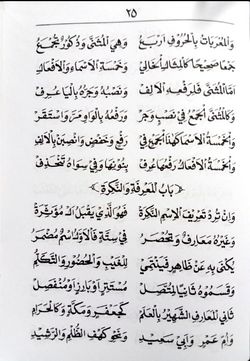 ٢٥
وَالْمُعْرَبَاتُ بِالْحُرُوفِ أَرْبَعُ وَهِيَ الْمُثَنَّى وَذُكُورٌ تُجْمَعُ
جَمْعًا صَحِيحًا كَالْمِثَالِ الْخَالِي وَخَمْسَةُ الْأَسْمَاءِ وَالْأَفْعَالِ
أَمَّا الْمُثَنَّى فَلِرَفْعِهِ الْأَلِفْ وَنَصْبُهُ وَجَرُّهُ بِالْيَا عُرِفْ
وَكَالْمُثَنَّى الْجَمْعُ فِي نَصْبٍ وَجَرْ وَرَفْعُهُ بِالْوَاوِ مَرَّ وَاسْتَقَرْ
وَالْخَمْسَةُ الْأَسْمَا كَهَذَا الْجَمْعِ فِي رَفْعٍ وَخَفْضٍ وَانْصِبَنْ بِالْأَلِفِ
وَالْخَمْسَةُ الْأَفْعَالُ رَفْعُهَا عُرِفْ بِنُونِهَا وَفِي سِوَاهُ تَنْحَذِفْ
بَابُ الْمَعْرِفَةِ وَالنَّكِرَةِ
وَإِنْ تُرِدْ تَعْرِيفَ الِاسْمِ النَّكِرَهْ فَهْوَ الَّذِي يَقْبَلُ أَلْ مُؤَثِّرَهْ
وَغَيْرُهُ مَعَارِفٌ وَتُحْصَرُ فِي سِتَّةٍ فَالْأَوَّلُ اسْمٌ مُضْمَرُ
يُكْنَى بِهِ عَنْ ظَاهِرٍ فَيَنْتَمِي لِلْغَيْبِ وَالْحُضُورِ وَالتَّكَلُّمِ
وَقَسَّمُوهُ ثَانِيًا لِمُتَّصِلْ مُسْتَتِرٍ أَوْ بَارِزٍ أَوْ مُنْفَصِلْ
ثَانِي الْمَعَارِفِ الشَّهِيرُ بِالْعَلَمْ كَجَعْفَرٍ وَمَكَّةٍ وَكَالْحَرَمْ
وَأُمِّ عَمْرٍو وَأَبِي سَعِيدِ وَنَحْوِ كَهْفِ الظُّلْمِ وَالرَّشِيدِ